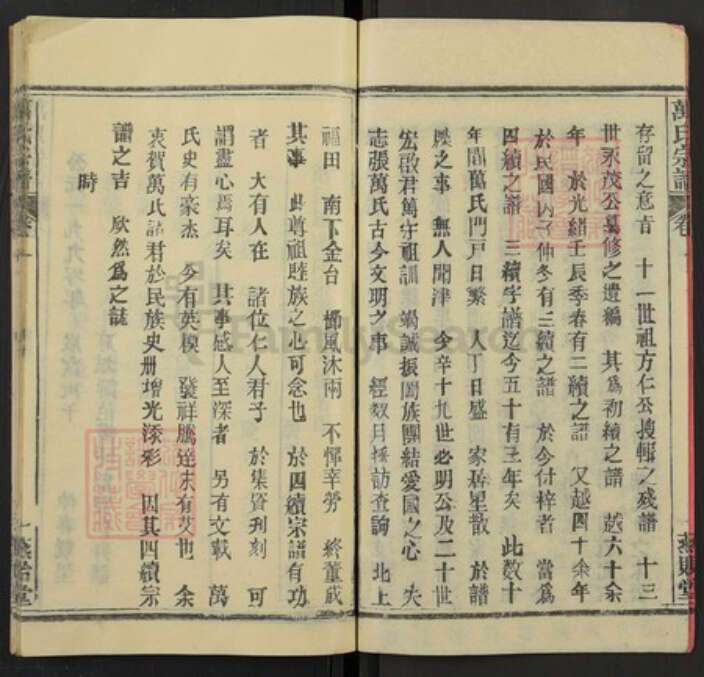 萬氏宗譜 卷一
存留之意旨 十一世祖方仁公搜輯之殘譜 十三
世永茂公纂修之遺編 其爲初續之譜 越六十余
年 於光緒壬辰季春有二續之譜 又越四十余年
於民國丙子仲冬有三續之譜 於今付梓者 當爲
四續之譜 三續宗譜迄今五十有三年矣 此數十
年間萬氏門戸日繁 人丁日盛 家居星散 於譜
之事 無人問津 今幸十九世必明公及二十世
宏啟君篤守祖訓 竭誠振闔族團結愛國之心 矢
志張萬氏古今文明之事 經數月採訪查詢 北上
福田 南下金台 櫛風沐雨 不憚辛勞 終董成
其事 此尊祖睦族之心可念也 於四續宗譜有功
者 大有人在 諸位仁人君子 於集資刋刻 可
謂盡心焉耳矣 其事感人至深者 另有文載 萬
氏史有豪杰 今有英模 發祥騰達未有艾也 余
衷賀萬氏諸君於民族史册增光添彩 因其四續宗
譜之吉 欣然爲之誌
時
燕貽堂
FamilySearch